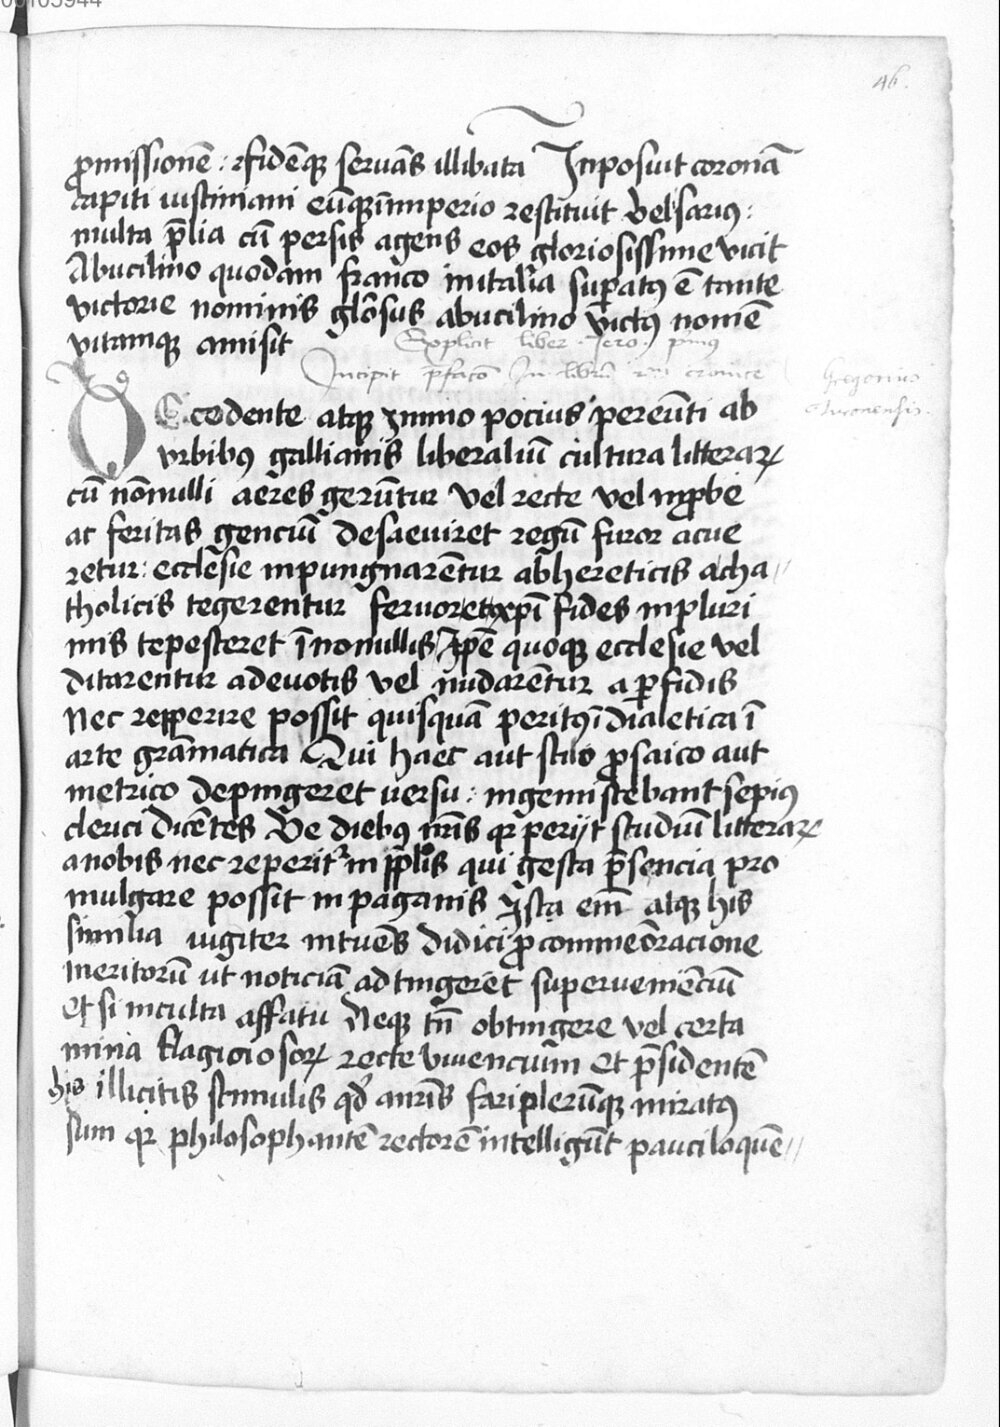 46.
ꝓmissionē : ⁊fidēqꝫ servās illibata Inposuit coronā
capiti iustiniani eūqꝫ īimperio restituit Belsarius :
multa p̄lia cū persis agens eos gloriosissime vicit
Abucilino quodam franco initalia suꝑatꝰ ē tante
victorie nominis glōsus abucilino victꝰ nomē
vitamqꝫ amisit
Explicit liber Jero. pmꝰ
Incipit p̄facō In librū cronice
Gregorius
Turonensis.
DEcedente atqꝫ ymmo pocius pereūti ab
vrbibꝰ gallianis liberaliū cultura litteraꝝ
cū nōnulli aeres gerūntur vel recte vel inꝓbe
ac feritas genciū desaeuiret regū furor acue
retur : ecclesie inpungnarēntur abhereticis acha
tholicis tegerentur feruoret xpī fides inpluri
mis tepesceret ī nonullis Ipē quoqꝫ ecclesie vel
ditarentur adeuotis vel nudarēntur aꝑfidis
Nec repperire possit quisquā peritꝰ ī dialetica ī
arte grāmatica Qui haec aut stilo ꝓsaico aut
metrico depingeret uersu : ingemiscebant sepius
clerici dicētes Ve diebꝰ nr̄is qꝛ perijt studiū litteraꝝ
anobis nec reperit᷑ in pp̄lis qui gesta p̄sencia pro
mulgare possit in paganis Ista em̄ atqꝫ his
similia iugiter intuēs didici ꝓ commeōracione
meritorū ut noticiā adtingeret superueniēciū
et si inculta affatu Neqꝫ tn̄ obtingere vel certa
mina flagicioscoꝝ recte viuencium et p̄sidentē
his illicitis stimulis qd̓ auris fariplerūqꝫ miratꝰ
sum qꝛ philosophantē rectorē intelligūt pauciloquē